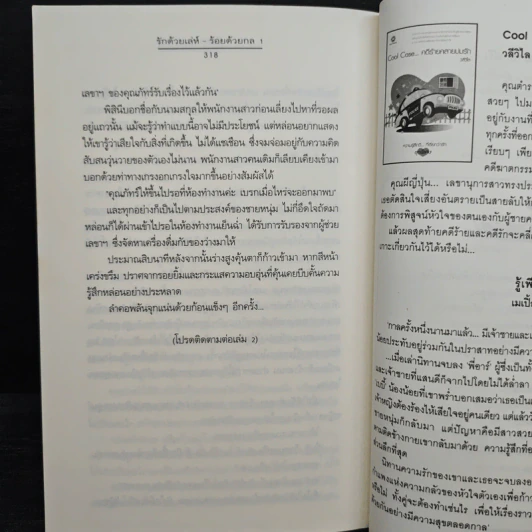 รักด้วยเล่ห์ - ร้อยด้วยกล 1
318
เลขาฯ ของคุณภัทร์รับเรื่องไว้แล้วกัน'
พิสินีบอกชื่อกับนามสกุลให้พนักงานสาวก่อนเลี่ยงไปหาที่รอผล
อยู่แถวนั้น แม้จะรู้ว่าทำแบบนี้อาจไม่มีประโยชน์ แต่หล่อนอยากแสดง
ให้เขารู้ว่าเสียใจกับสิ่งที่เกิดขึ้น ไม่ได้แชเชือน ซึ่งจมจ่อมอยู่กับความคิด
สับสนวุ่นวายของตัวเองไม่นาน พนักงานสาวคนเดิมก็เลียบเคียงเข้ามา
บอกด้วยท่าทางเกรงอกเกรงใจมากขึ้นอย่างสัมผัสได้
'คุณภัทร์ให้ขึ้นไปรอที่ห้องทำงานค่ะ เบรกเมื่อไหร่จะออกมาพบ'
และทุกอย่างก็เป็นไปตามประสงค์ของชายหนุ่ม ไม่กี่อึดใจถัดมา
หล่อนก็ได้ผ่านเข้าไปรอในห้องทำงานเย็นฉ่ำ ได้รับการรับรองจากผู้ช่วย
เลขาฯ ซึ่งจัดหาเครื่องดื่มกับของว่างมาให้
ประมาณสิบนาทีหลังจากนั้นร่างสูงคุ้นตาก็ก้าวเข้ามา หากสีหน้า
เคร่งขรึม ปราศจากรอยยิ้มและกระแสความอบอุ่นที่คุ้นเคยบีบคั้นความ
รู้สึกหล่อนอย่างประหลาด
ลำคอพลันจุกแน่นด้วยก้อนแข็งๆ อีกครั้ง...
(โปรดติดตามต่อเล่ม 2)
Cool
วลีวิไล
Cool Case... คดีร้ายคลายปมรัก
คุณตำร
สวยๆ ไปมา
อยู่กับงานที่
ทุกครั้งที่ออก
เรียบๆ เพีย
คดีฆาตกรรม
คุณผีญี่ปุ่น... เลขานุการสาวทรงประ
เธอตัดสินใจเสี่ยงอันตรายเป็นสายลับให้
ต้องการพิสูจน์หัวใจของตนเองกับผู้ชาย
แล้วผลสุดท้ายคดีร้ายและคดีรักจะคลี่
เกาะเกี่ยวกันไว้ได้หรือไม่...
รู้เพี
เมเปิ้
'กาลครั้งหนึ่งนานมาแล้ว... มีเจ้าชายและเ
น้อยประทับอยู่ร่วมกันในปราสาทอย่างมีความ
...เมื่อเล่านิทานจบลง 'พี่อาร์' ผู้ซึ่งเป็นทั้
และเจ้าชายที่แสนดีก็จากไปโดยไม่ได้ล่ำลา
น้องน้อยที่เขาพร่ำบอกเสมอว่าเธอเป็น
เจ้าหญิงต้องร้องไห้เสียใจอยู่คนเดียว แต่แล้ว
ชายหนุ่มก็กลับมา แต่ปัญหาคือมีสาวสวย
ตามติดข้างกายเขากลับมาด้วย ความรู้สึกที่
ส่วนลึกที่สุด
นิทานความรักของเขาและเธอจะจบลง
กำแพงแห่งความกลัวของหัวใจตัวเองเพื่อก้าว
หรือไม่ ทั้งคู่จะต้องทำเช่นไร เพื่อให้เรื่องราว
ด้วยกันอย่างมีความสุขตลอดกาล'